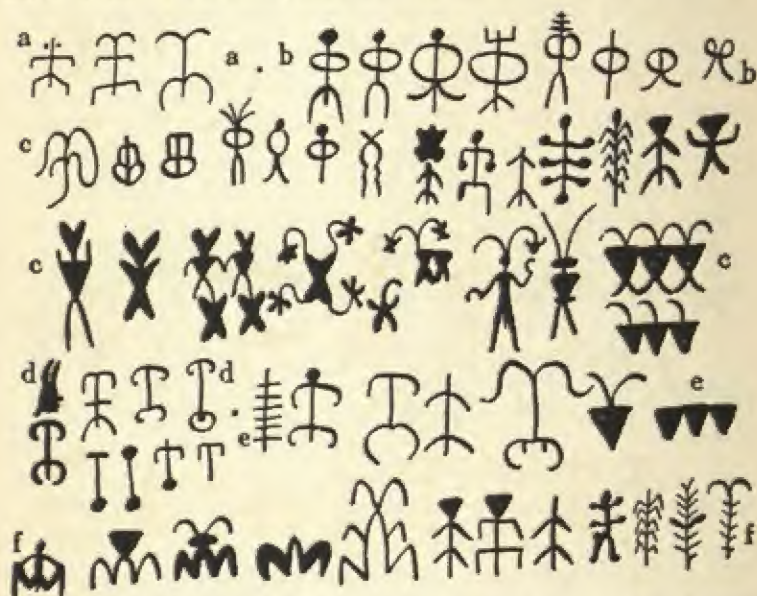 a a . b b
c
c c
d d . e e
f f